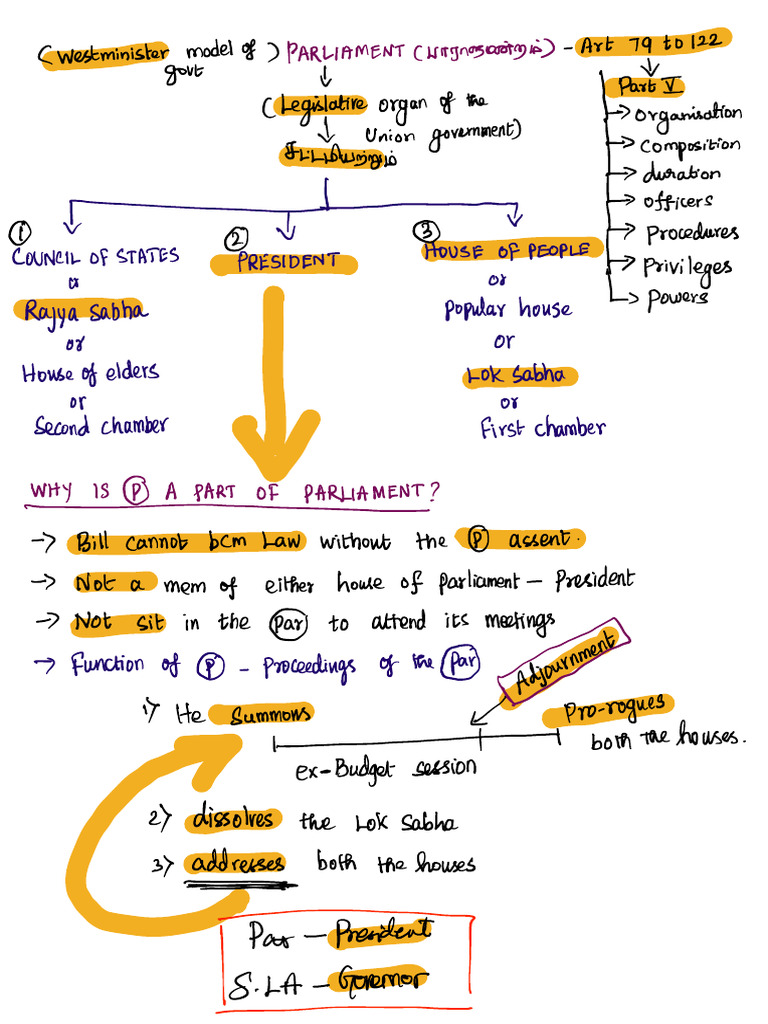 (Westminister model of govt) PARLIAMENT (பாராளுமன்றம்) - Art 79 to 122
(Legislative organ of the Union government)
சட்டமியற்றும்
Part V
Organisation
Composition
duration
officers
Procedures
Privileges
Powers
① COUNCIL OF STATES
or
Rajya Sabha
or
House of elders
or
Second chamber
② PRESIDENT
③ HOUSE OF PEOPLE
or
Popular house
or
LOK Sabha
or
First chamber
WHY IS Ⓟ A PART OF PARLIAMENT?
→ Bill cannot bcm Law without the Ⓟ assent.
→ Not a mem of either house of parliament - President
→ Not sit in the Par to attend its meetings
→ Function of Ⓟ - Proceedings of the Par
Adjournment
1) He Summons
Pro-rogues
both the houses.
ex-Budget session
2) dissolves the LOK Sabha
3) addresses both the houses
Par - President
S.LA - Governor